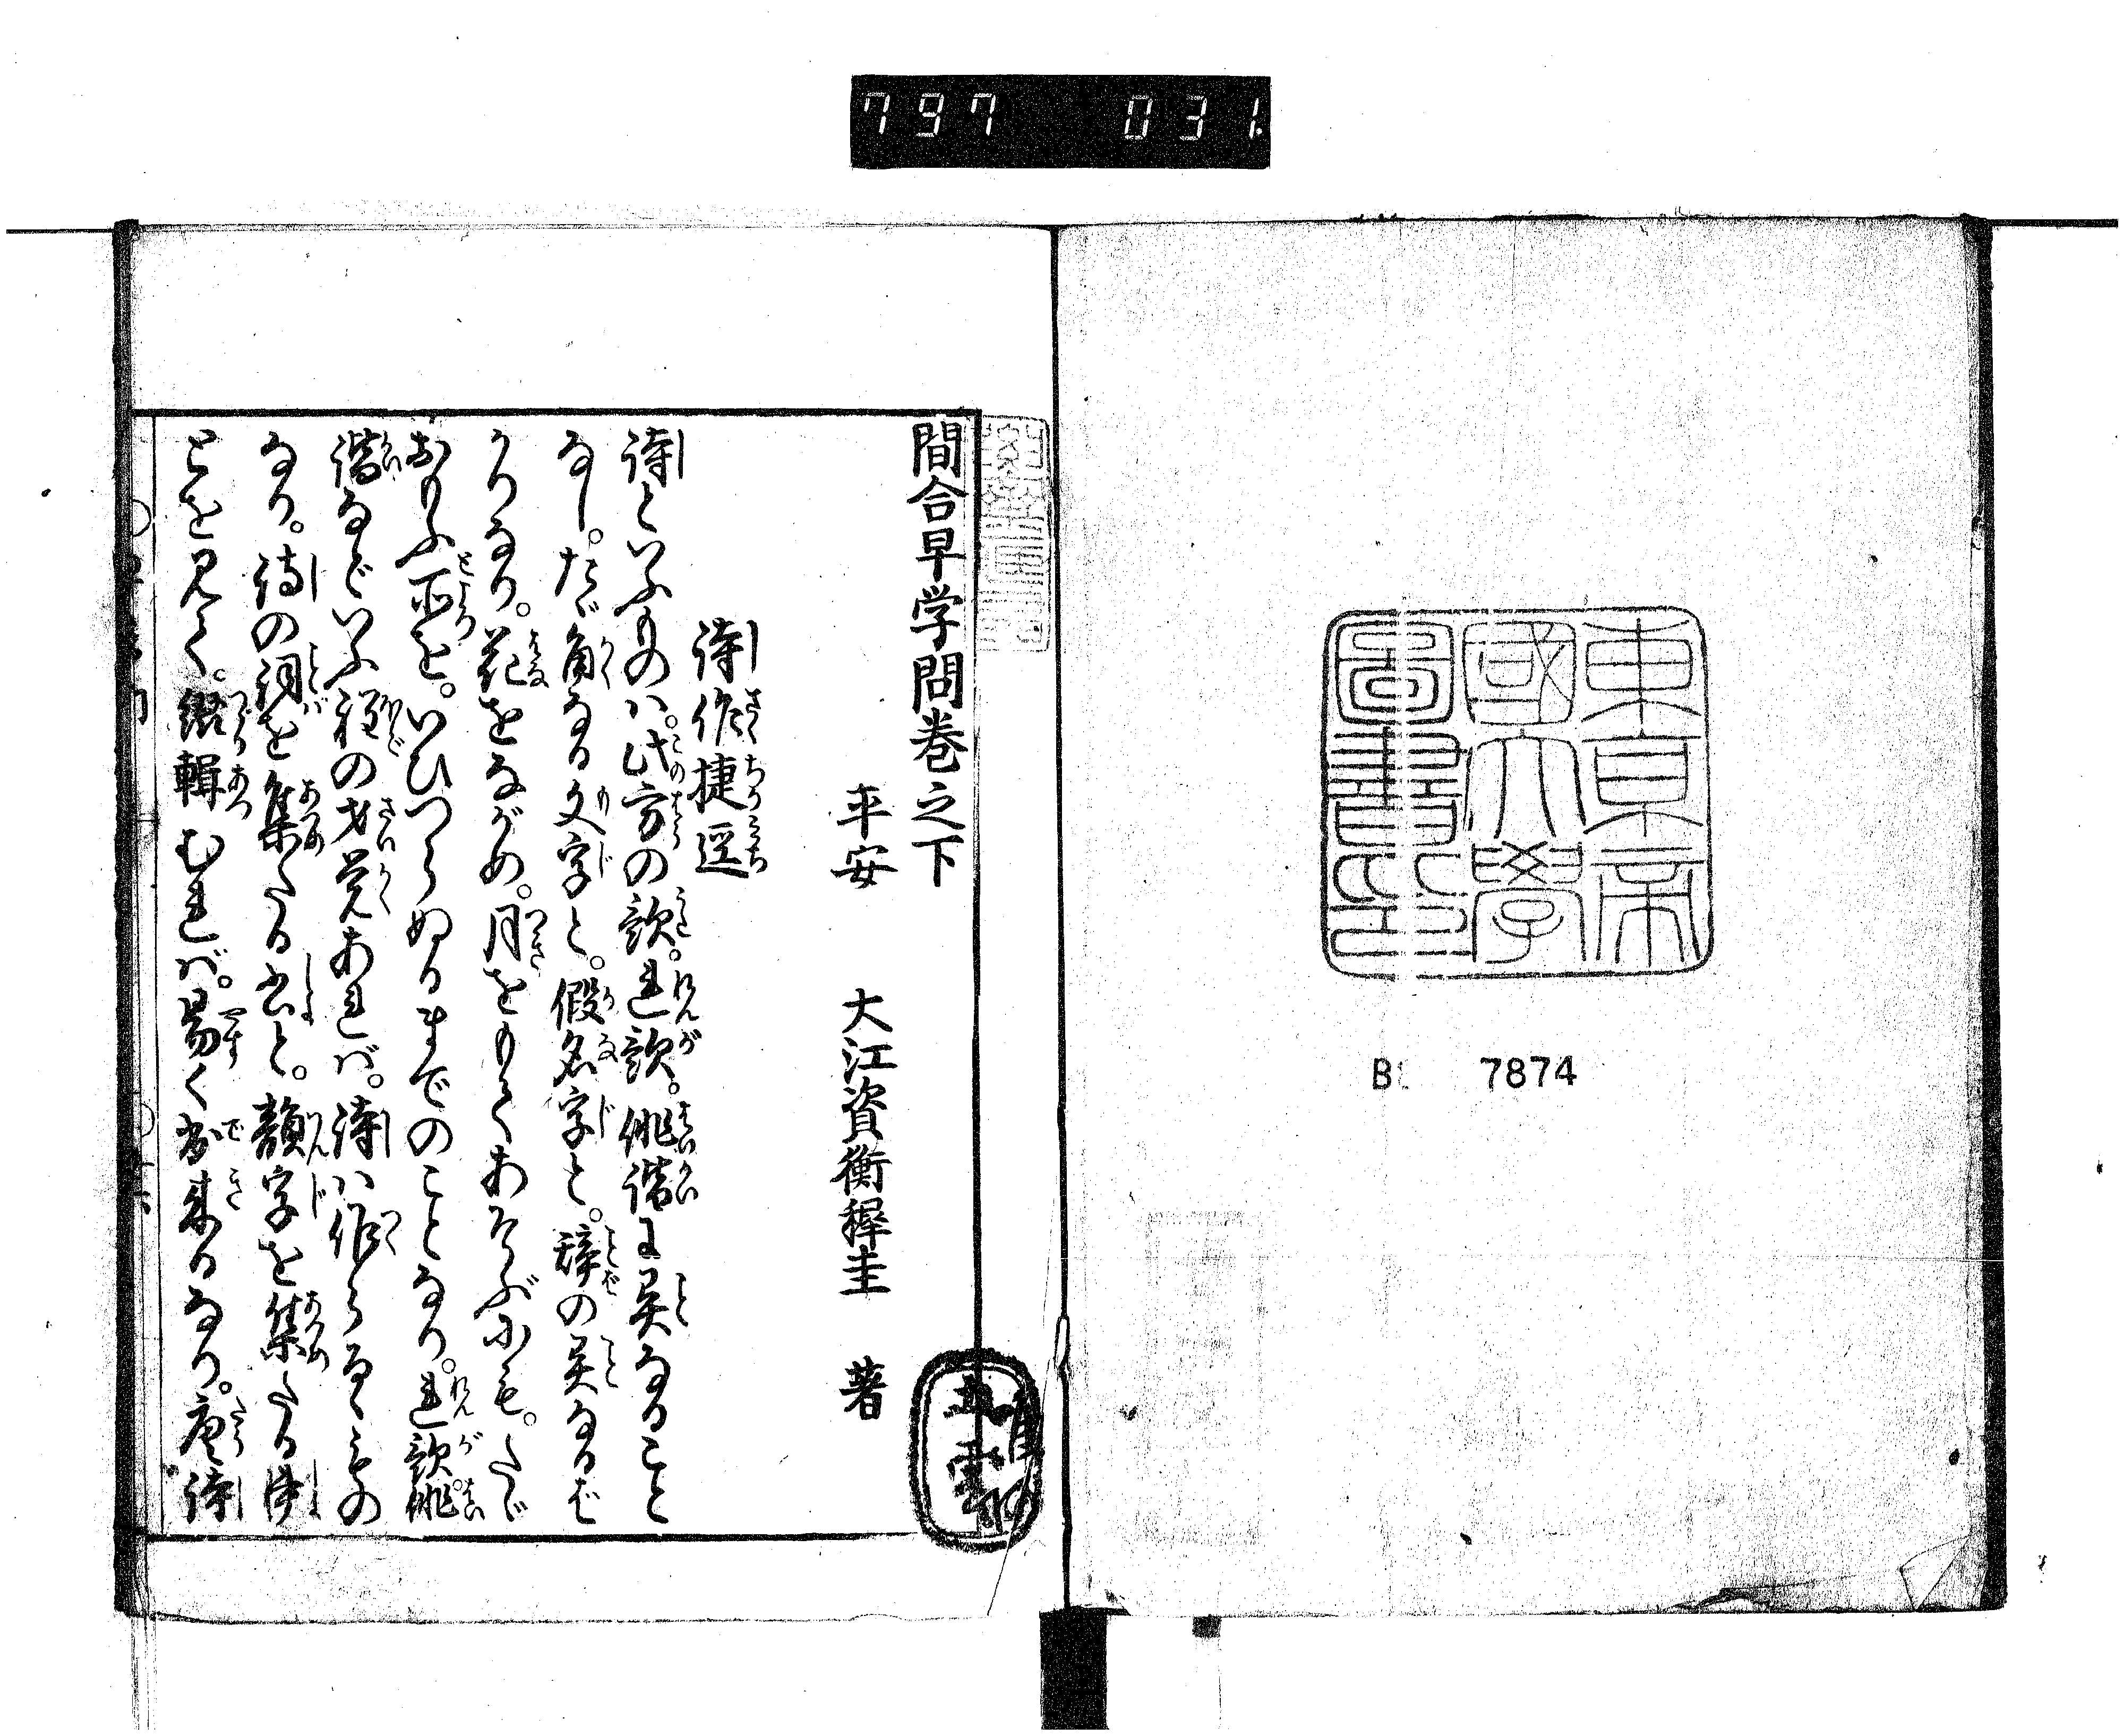 797 031
東京帝
國大學
圖書印
B 7874
間合早学問巻之下
平安 大江資衡穉圭 著
詩作捷逕
詩といふものハ。此方の歌。連歌。俳諧に異なること
なし。たゞ角なる文字と。假名字と。辞の異なるば
かりなり。花をながめ。月をもてあそぶにも。たゞ
おもふ所を。いひつらぬるまでのことなり。連歌俳
諧などいふ程の才覚あれバ。詩ハ作らるゝもの
なり。詩の詞を集たる書と。韻字を集たる書
とを見て。綴輯むれバ。易く出来るなり。唐詩